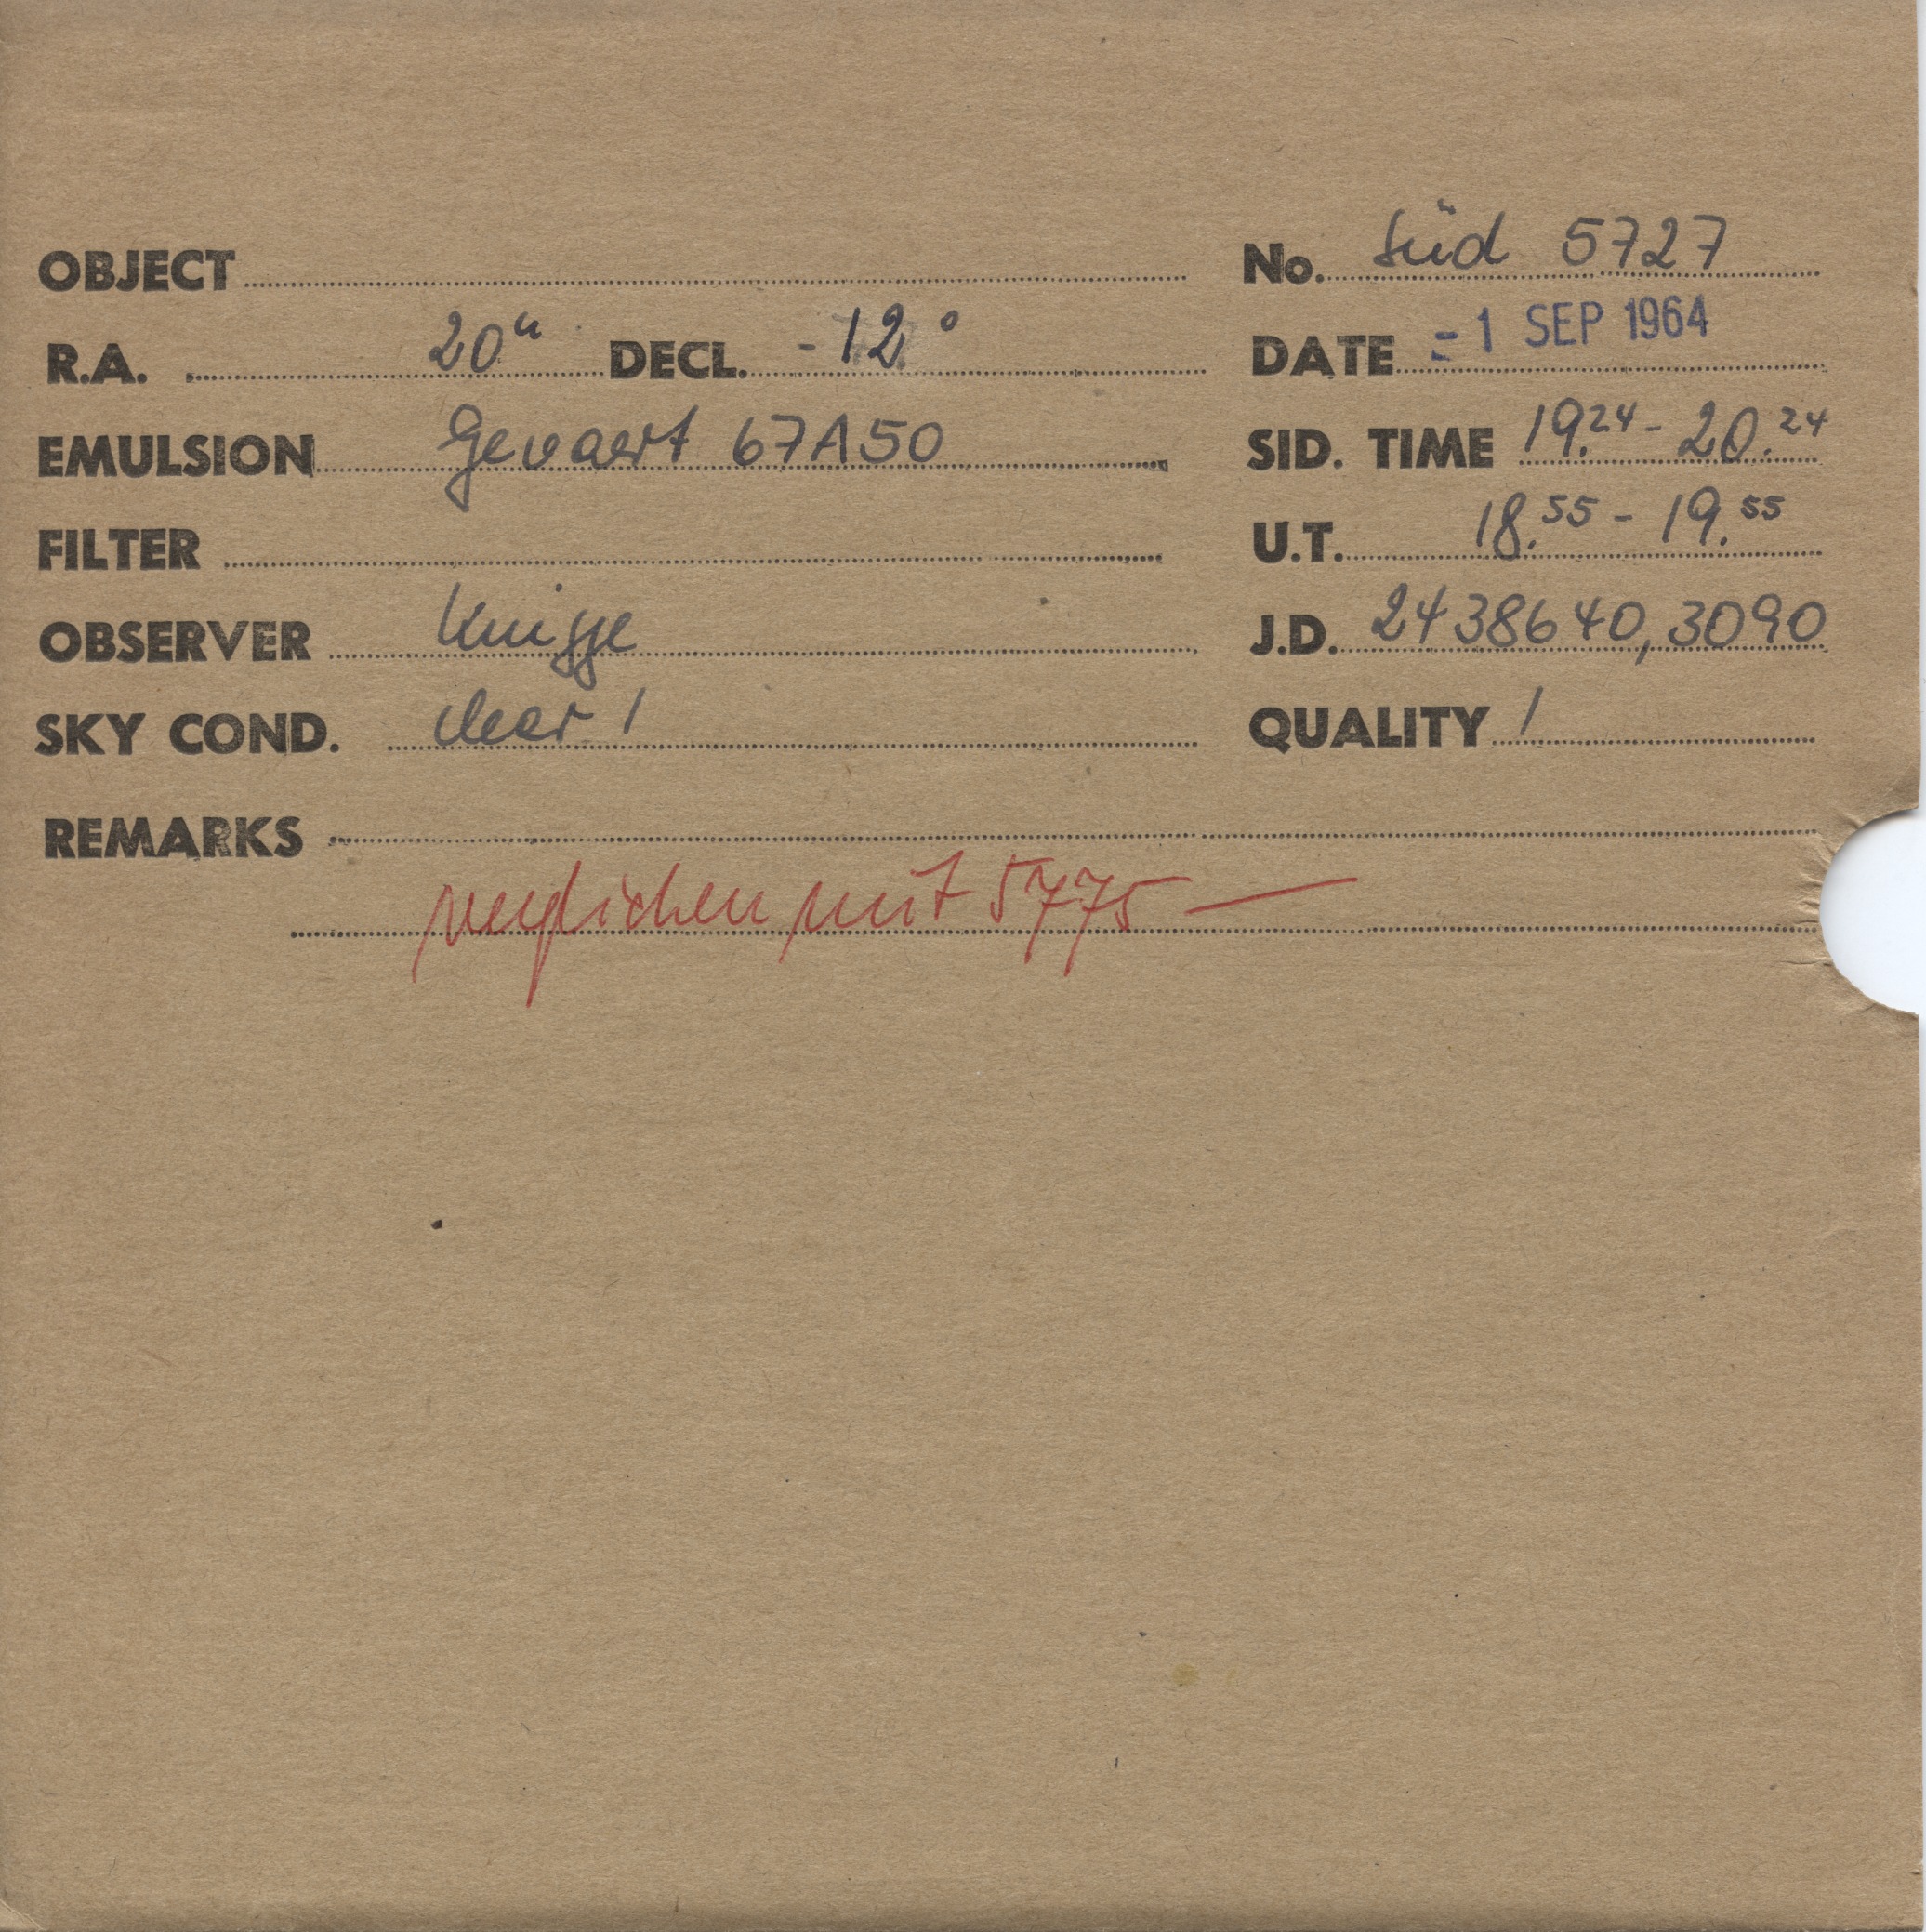 OBJECT No. Süd 5727
R.A. 20h DECL. -12° DATE -1 SEP 1964
EMULSION Gevaert 67A50 SID. TIME 19.24 - 20.24
FILTER U.T. 18.55 - 19.55
OBSERVER Knigge J.D. 2438640,3090
SKY COND. clear 1 QUALITY 1
REMARKS
verglichen mit 5775 —